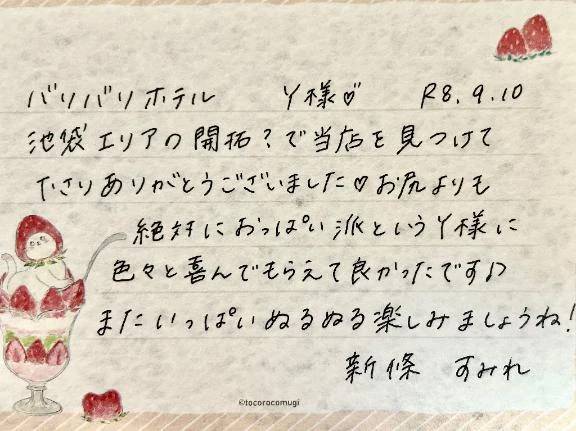 バリバリホテル Y様♡ R8.9.10
池袋エリアの開拓?で当店を見つけて
下さりありがとうございました♡お尻よりも
絶対におっぱい派というY様に
色々と喜んでもらえて良かったです♪
またいっぱいぬるぬる楽しみましょうね!
新條 すみれ
©tocorocomugi